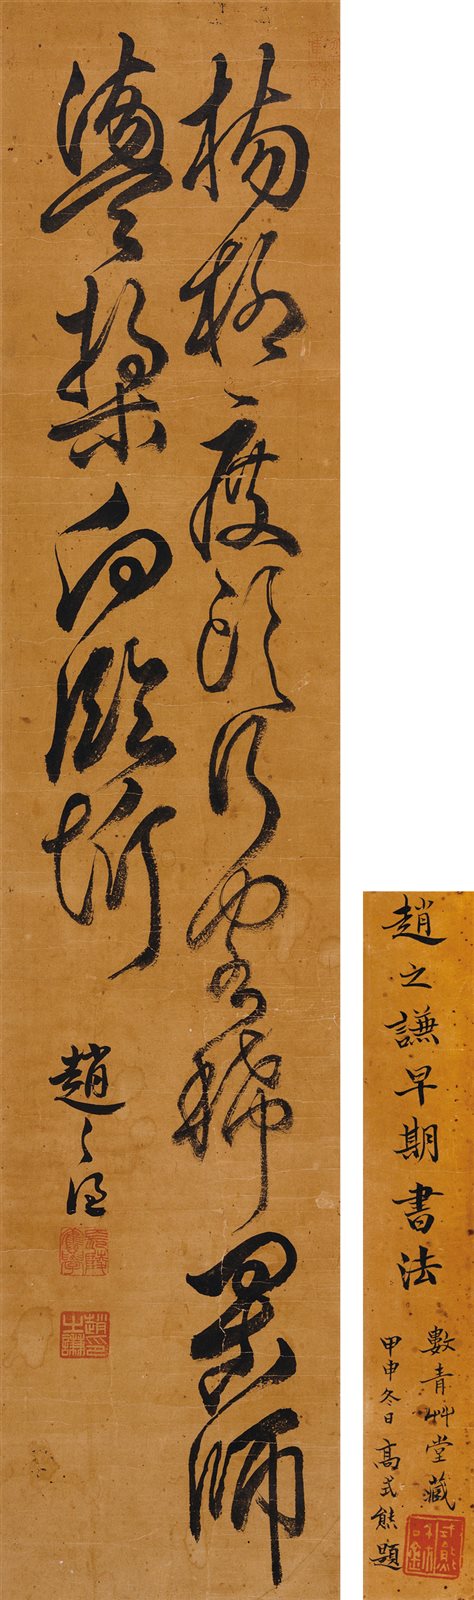 楊柳渡頭行客稀罟師
盪槳向臨圻
趙之謙
趙之謙早期書法
數青艸堂藏
甲申冬日高式熊題